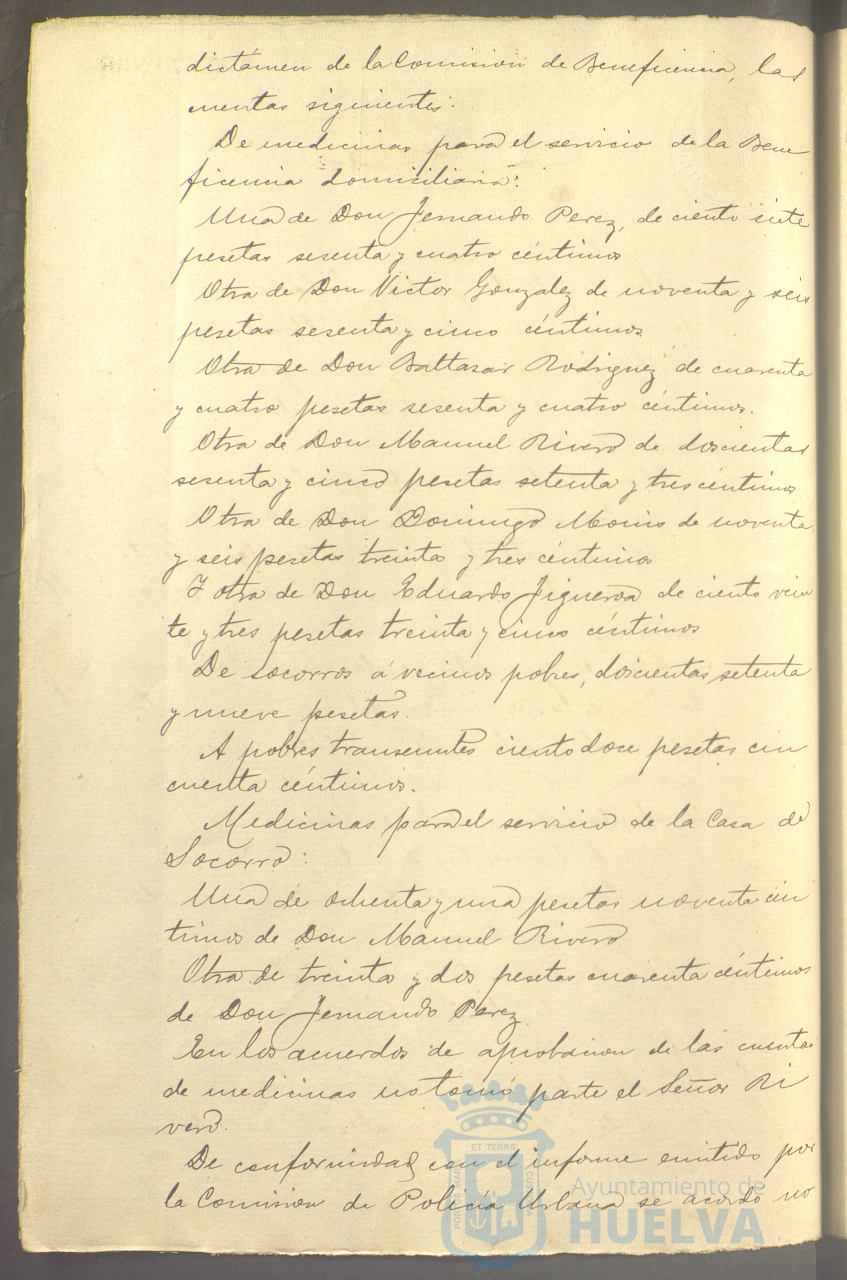 dictámen de la Comision de Beneficencia, las
cuentas siguientes:
De medicinas para el servicio de la Bene
ficencia domiciliaria:
Una de Don Fernando Perez, de ciento siete
pesetas sesenta y cuatro céntimos
Otra de Don Victor Gonzalez de noventa y seis
pesetas sesenta y cinco céntimos
Otra de Don Baltasar Rodriguez de cuarenta
y cuatro pesetas sesenta y cuatro céntimos.
Otra de Don Manuel Rivero de doscientas
sesenta y cinco pesetas setenta y tres céntimos
Otra de Don Domingo de noventa
y seis pesetas treinta y tres céntimos
Y otra de Don Eduardo Figueroa de ciento vein
te y tres pesetas treinta y cinco céntimos
De socorros á vecinos pobres, doscientas setenta
y nueve pesetas.
A pobres transeuntes ciento doce pesetas cin
cuenta céntimos.
Medicinas para el servicio de la Casa de
Socorro:
Una de ochenta y una pesetas noventa cén
timos de Don Manuel Rivero
Otra de treinta y dos pesetas cuarenta céntimos
de Don Fernando Perez
En los acuerdos de aprobacion de las cuentas
de medicinas no tomó parte el Señor Ri
vero.
De conformidad con el informe emitido por
la Comision de Policía Urbana se acordó no
ET TERRÆ
Ayuntamiento de
HUELVA